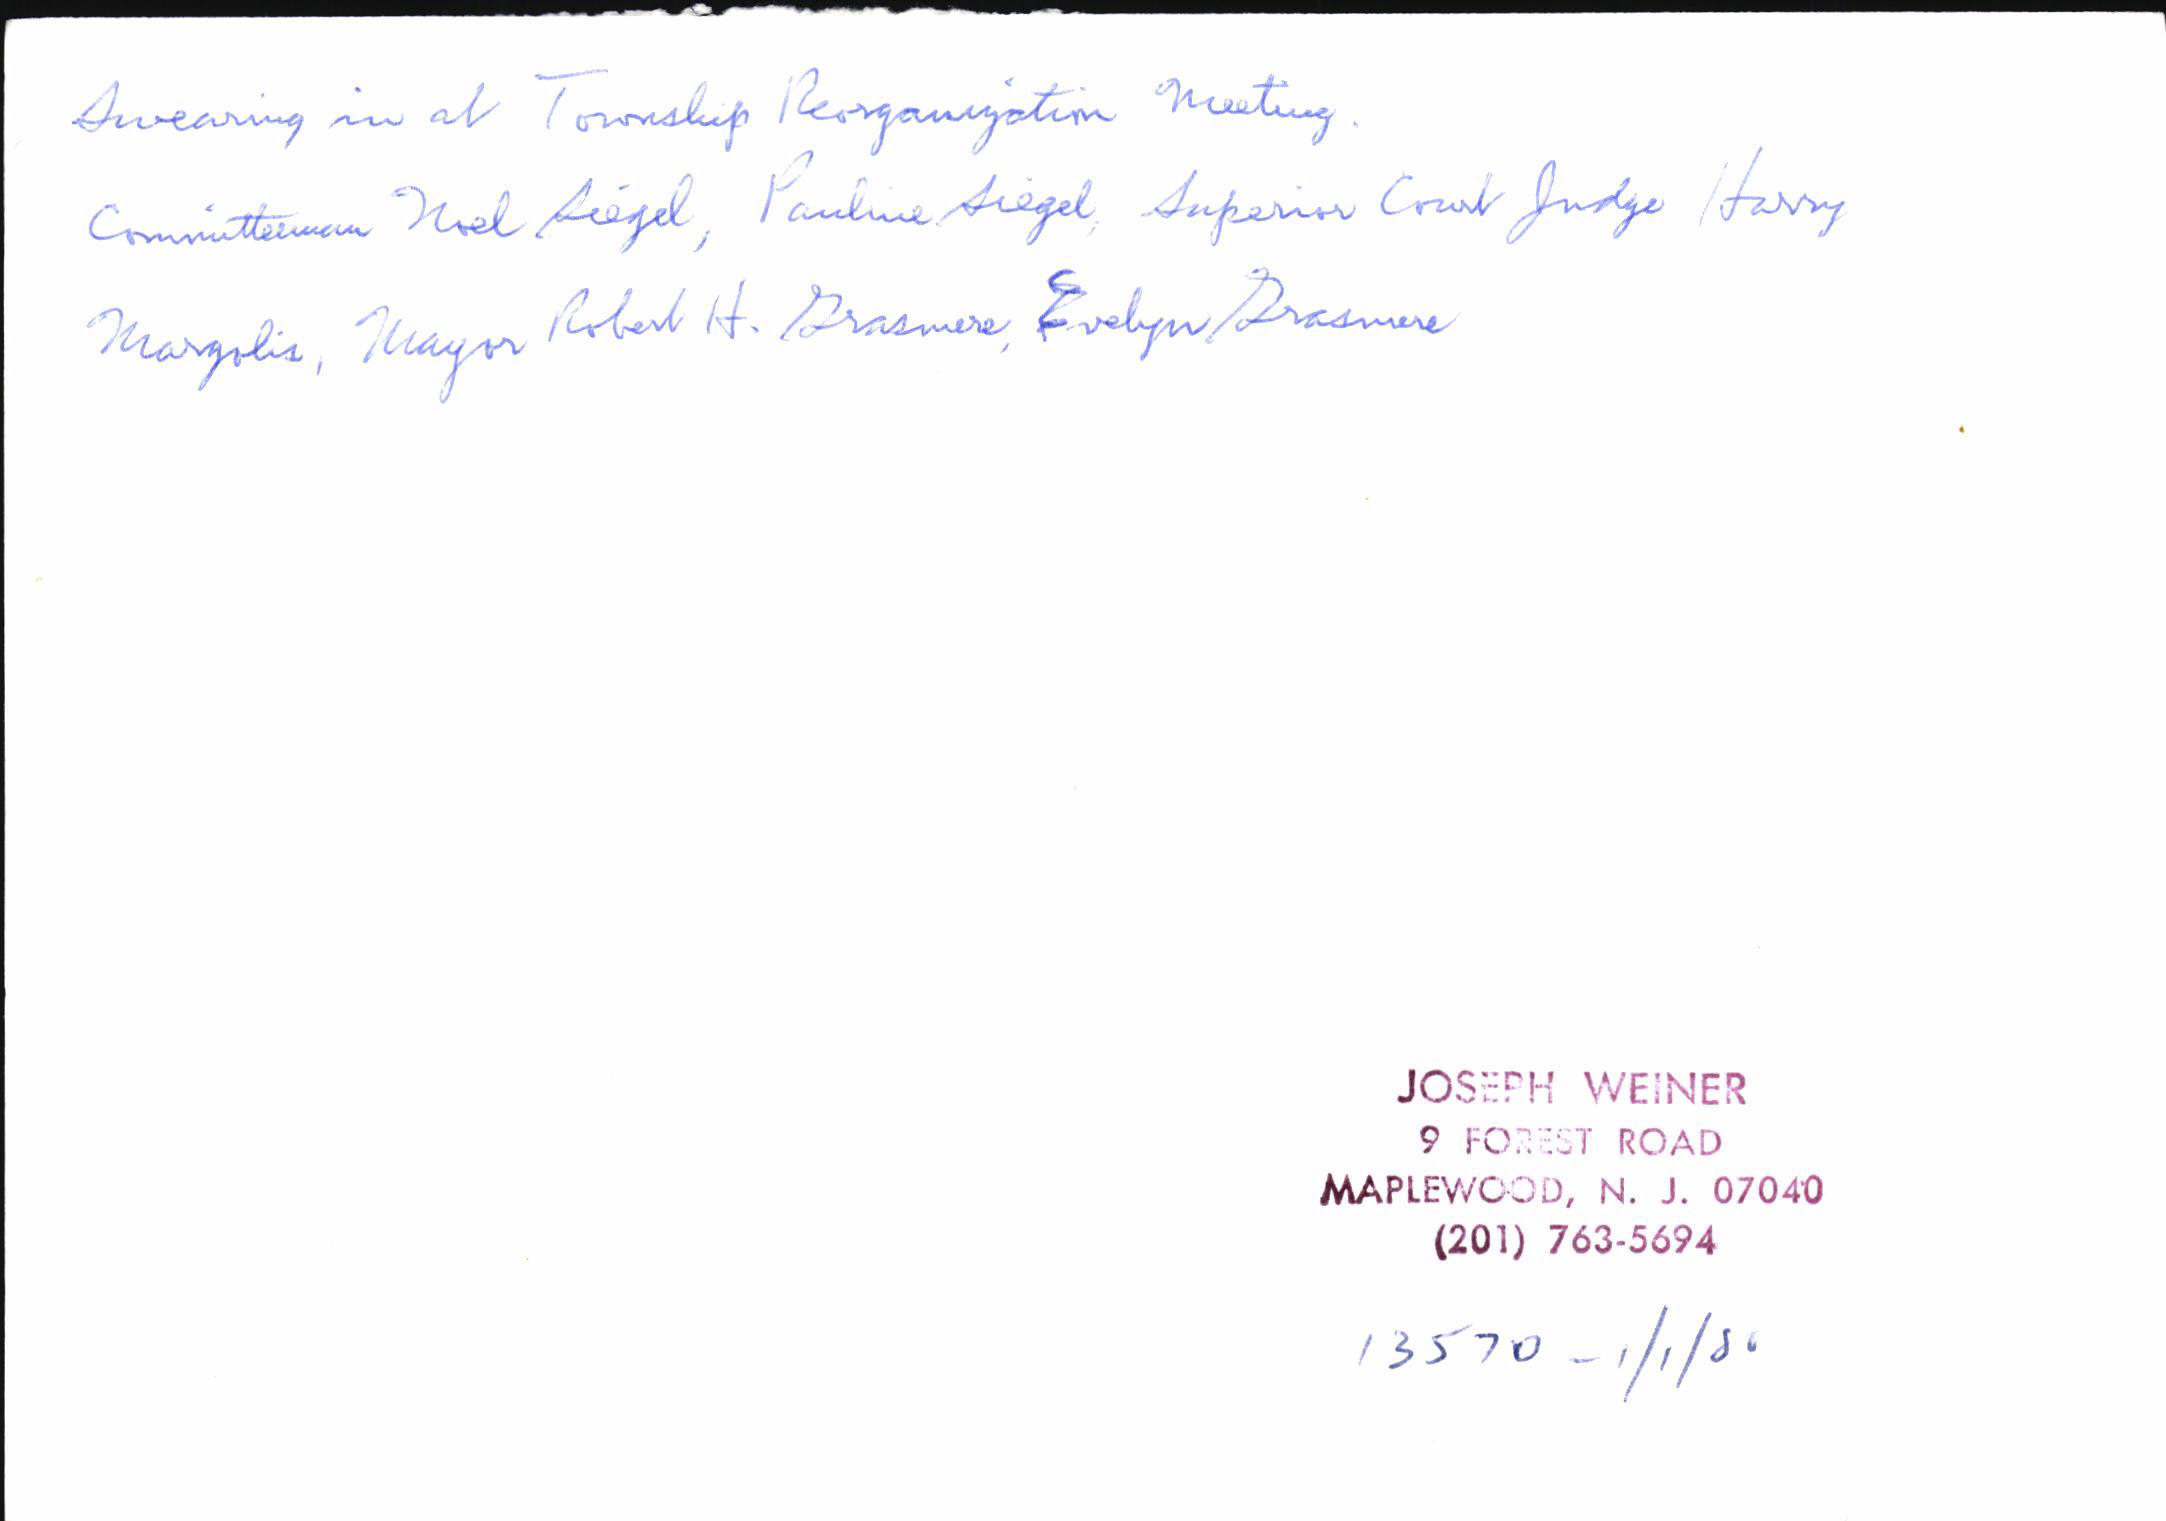 Swearing in at Township Reorganization Meeting.
Committeeman Noel Siegel, Pauline Siegel, Superior Court Judge Harry
Margolis, Mayor Robert H. Grasmere, Evelyn Grasmere
JOSEPH WEINER
9 FOREST ROAD
MAPLEWOOD, N. J. 07040
(201) 763-5694
13570 - 1/1/80